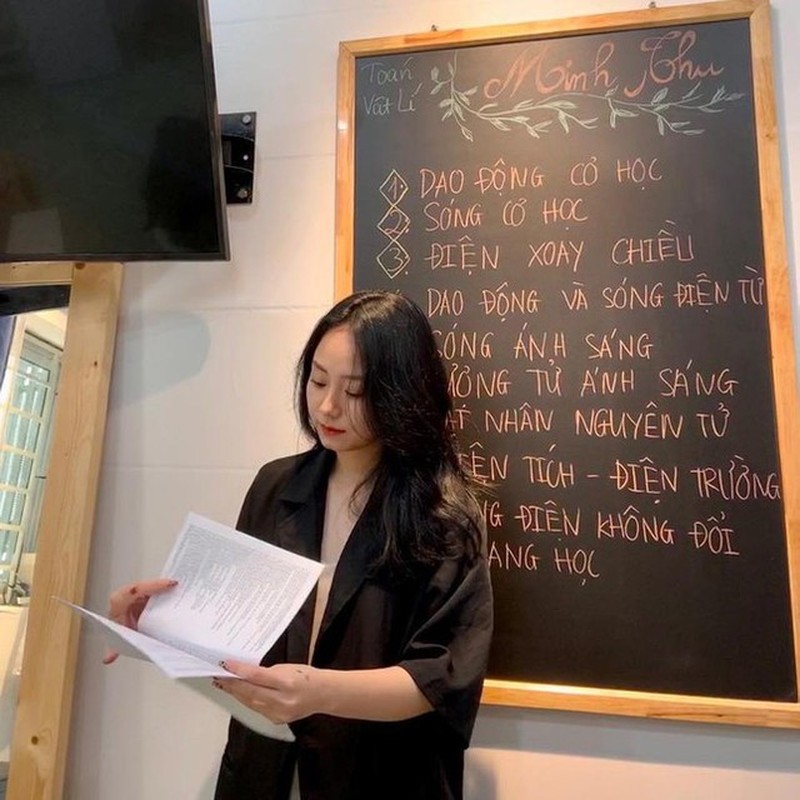 Toán
Vật Lí
Minh Thu
1. DAO ĐỘNG CƠ HỌC
2. SÓNG CƠ HỌC
3. ĐIỆN XOAY CHIỀU
DAO ĐỘNG VÀ SÓNG ĐIỆN TỪ
SÓNG ÁNH SÁNG
ƯỢNG TỬ ÁNH SÁNG
NHÂN NGUYÊN TỬ
TÍCH - ĐIỆN TRƯỜNG
ĐIỆN KHÔNG ĐỔI
ANG HỌC